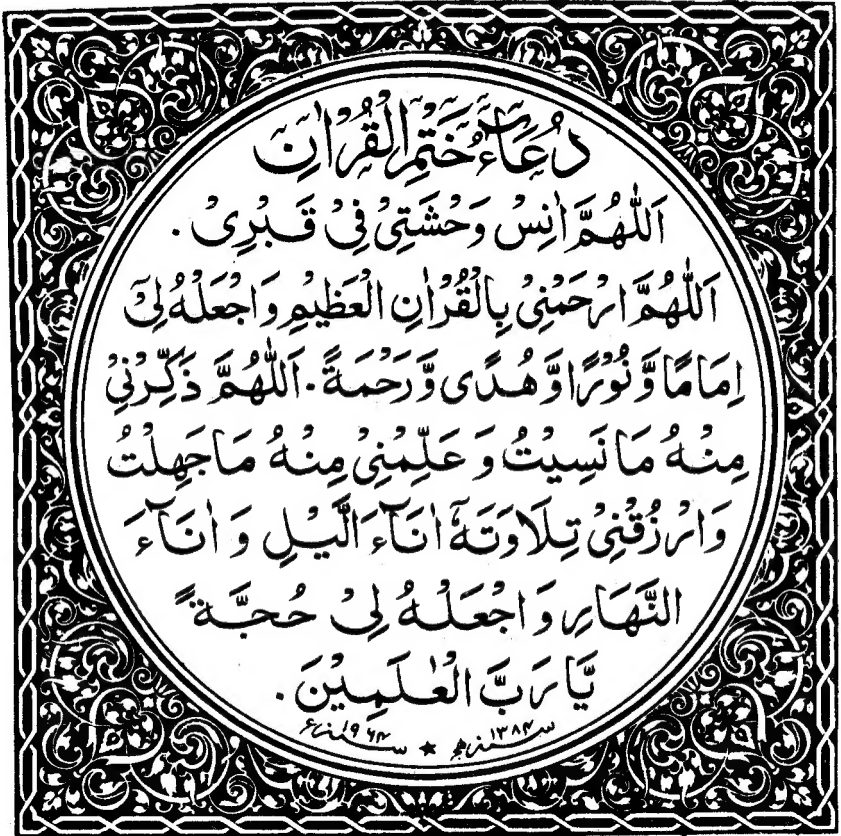 دُعَاءُ خَتْمِ الْقُرْاٰنِ
اَللّٰهُمَّ اٰنِسْ وَحْشَتِیْ فِیْ قَبْرِیْ .
اَللّٰهُمَّ ارْحَمْنِیْ بِالْقُرْاٰنِ الْعَظِیْمِ وَاجْعَلْهُ لِیْٓ
اِمَامًا وَّ نُوْرًا وَّ هُدًی وَّ رَحْمَةً . اَللّٰهُمَّ ذَکِّرْنِیْ
مِنْهُ مَا نَسِیْتُ وَ عَلِّمْنِیْ مِنْهُ مَا جَهِلْتُ
وَارْزُقْنِیْ تِلَاوَتَهٗٓ اٰنَآءَ الَّیْلِ وَ اٰنَآءَ
النَّهَارِ وَاجْعَلْهُ لِیْ حُجَّةً
یَّا رَبَّ الْعٰلَمِیْنَ .
سنه ۱۳۸۴ھ ★ سنه ۱۹۶۴ء